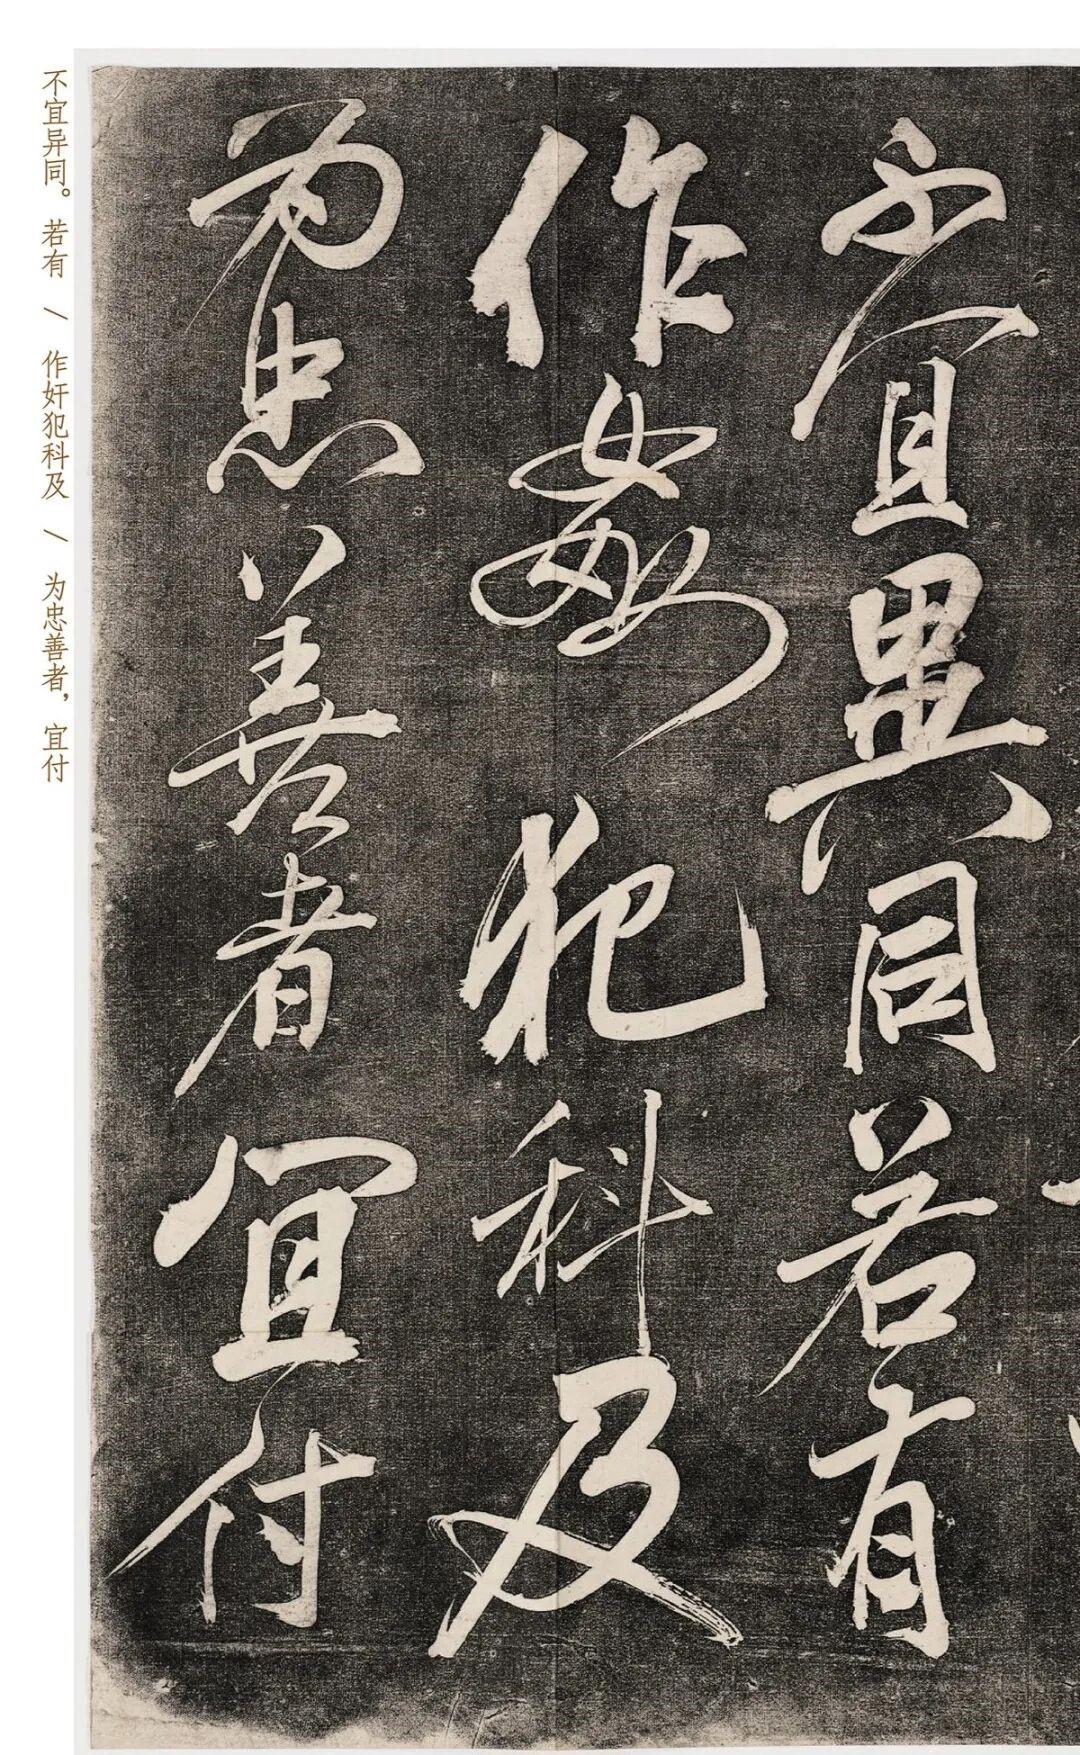 不宜異同若有
作姦犯科及
為忠善者宜付
不宜异同。若有 / 作奸犯科及 / 为忠善者，宜付